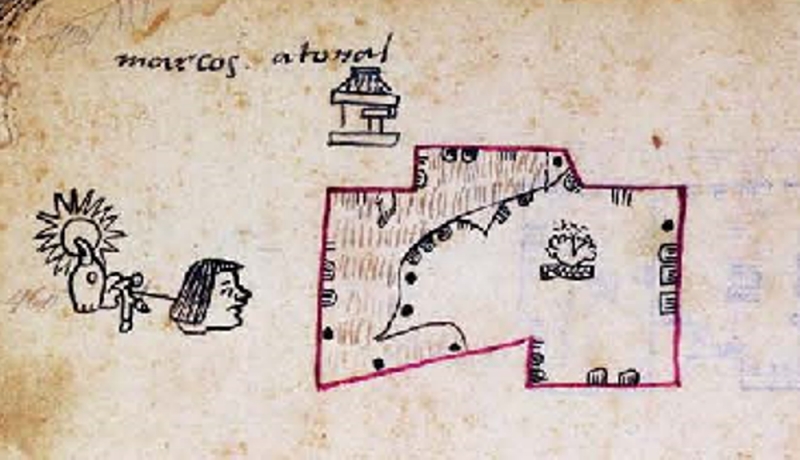 marcos. atonal